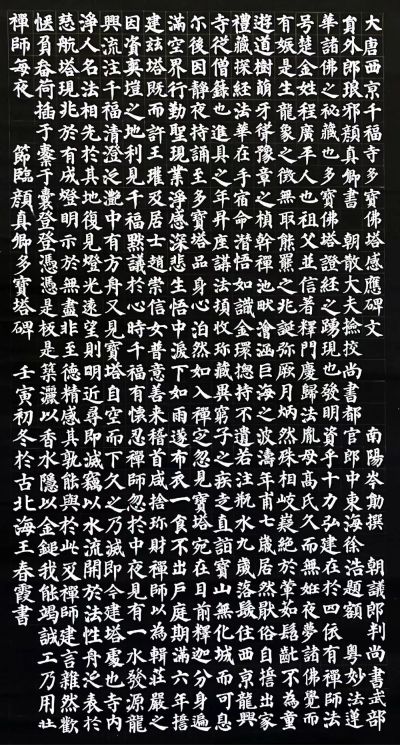 大唐西京千福寺多寶佛塔感應碑文 南陽岑勛撰 朝議郎判尚書武部
員外郎琅邪顏真卿書 朝散大夫撿挍尚書都官郎中東海徐浩題額 粵妙法蓮
華諸佛之秘藏也多寶佛塔證經之踴現也發明資乎十力弘建在於四依有禪師法
號楚金姓程廣平人也祖父並信著釋門慶歸法胤母高氏久而無姙夜夢諸佛覺而
有娠是生龍象之徵無取熊羆之兆誕弥厥月炳然殊相岐嶷絕於葷茹髫齔不為童
遊道樹萌牙聳豫章之楨幹禪池畎澮涵巨海之波濤年甫七歲居然厭俗自誓出家
禮藏探經法華在手宿命潛悟如識金環揔持不遺若注瓶水九歲落髮住西京龍興
寺從僧籙也進具之年昇座講法頓收珎藏異窮子之疾走直詣寶山無化城而可息
尒後因靜夜持誦至多寶塔品身心泊然如入禪定忽見寶塔宛在目前釋迦分身遍
滿空界行勤聖現業淨感深悲生悟中淚下如雨遂布衣一食不出戶庭期滿六年誓
建茲塔既而許王瓘及居士趙崇信女普意善來稽首咸捨珎財禪師以為輯莊嚴之
因資爽塏之地利見千福默議於心時千福有懷忍禪師忽於中夜見有一水發源龍
興流注千福清澄泛灩中有方舟又見寶塔自空而下久之乃滅即今建塔處也寺內
淨人名法相先於其地復見燈光遠望則明近尋即滅竊以水流開於法性舟泛表於
慈航塔現兆於有成燈明示於無盡非至德精感其孰能與於此及禪師建言雜然歡
愜負畚荷插于橐于囊登登憑憑是板是築灑以香水隱以金鎚我能竭誠工乃用壯
禪師每夜 節臨顏真卿多寶塔碑 壬寅初冬於古北海王春霞書